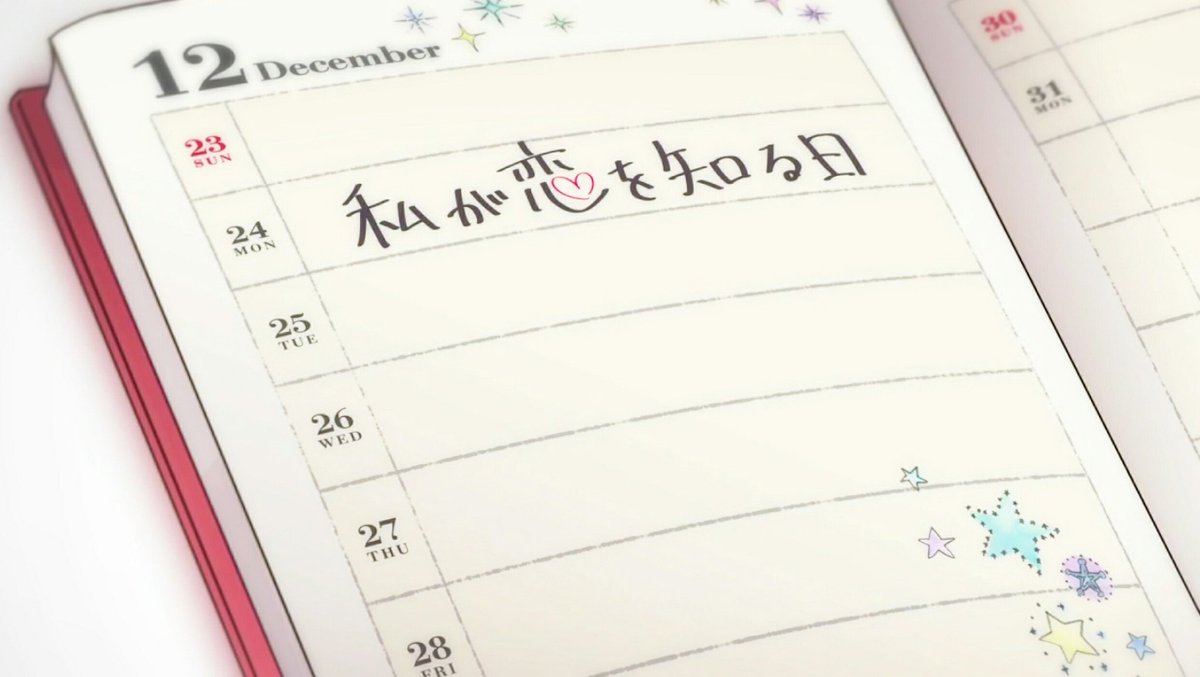 12 December
23
SUN
私が恋を知る日
24
MON
25
TUE
26
WED
27
THU
28
FRI
30
SUN
31
MON